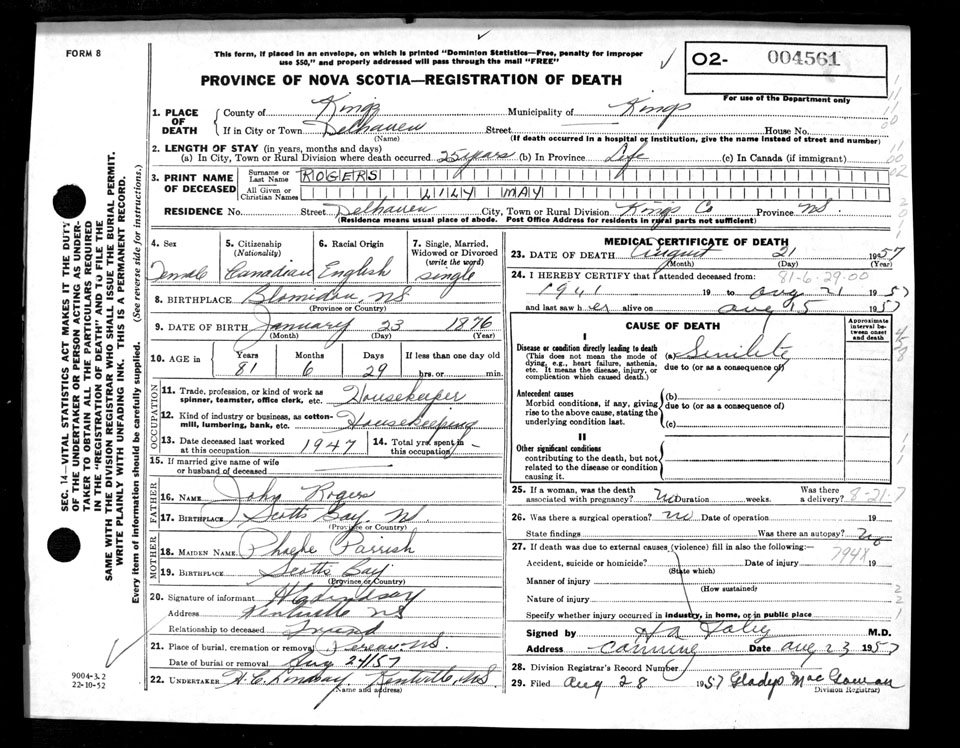 FORM 8
This form, if placed in an envelope, on which is printed "Dominion Statistics—Free, penalty for improper
use $50," and properly addressed will pass through the mail "FREE"
O2- 004561
For use of the Department only
PROVINCE OF NOVA SCOTIA—REGISTRATION OF DEATH
1. PLACE OF DEATH County of Kings Municipality of Kings
If in City or Town Delhaven (Name) Street House No.
(If death occurred in a hospital or institution, give the name instead of street and number)
2. LENGTH OF STAY (in years, months and days)
(a) In City, Town or Rural Division where death occurred 25 years (b) In Province Life (c) In Canada (if immigrant)
3. PRINT NAME OF DECEASED Surname or Last Name ROGERS
All Given or Christian Names LILY MAY
RESIDENCE No. Street Delhaven City, Town or Rural Division Kings Co Province NS.
(Residence means usual place of abode. Post Office Address for residents in rural parts not sufficient)
4. Sex Female
5. Citizenship (Nationality) Canadian
6. Racial Origin English
7. Single, Married, Widowed or Divorced (write the word) single
8. BIRTHPLACE Blomidon, NS
(Province or Country)
9. DATE OF BIRTH January 23 1876
(Month) (Day) (Year)
10. AGE in Years 81 Months 6 Days 29 If less than one day old hrs. or min.
OCCUPATION
11. Trade, profession, or kind of work as spinner, teamster, office clerk, etc. Housekeeper
12. Kind of industry or business, as cotton-mill, lumbering, bank, etc. Housekeeping
13. Date deceased last worked at this occupation 1947 14. Total yrs. spent in this occupation
15. If married give name of wife or husband of deceased
FATHER
16. NAME John Rogers
17. BIRTHPLACE Scotts Bay, NS
(Province or Country)
MOTHER
18. MAIDEN NAME Phoebe Parrish
19. BIRTHPLACE Scotts Bay
(Province or Country)
20. Signature of informant H C Lindsay
Address Kentville NS
Relationship to deceased Friend
21. Place of burial, cremation or removal N.S.
Date of burial or removal Aug 24/57
22. UNDERTAKER H. C. Lindsay Kentville, NS
(Name and address)
MEDICAL CERTIFICATE OF DEATH
23. DATE OF DEATH August 21 1957
(Month) (Day) (Year)
81-6-29-00
24. I HEREBY CERTIFY that I attended deceased from:
1941 19 to Aug 21 1957
and last saw her alive on Aug 15 1957
CAUSE OF DEATH
Approximate interval between onset and death
I
Disease or condition directly leading to death
(This does not mean the mode of dying, e.g., heart failure, asthenia, etc. It means the disease, injury, or complication which caused death.)
(a) Senility
due to (or as a consequence of)
Antecedent causes
Morbid conditions, if any, giving rise to the above cause, stating the underlying condition last.
(b)
due to (or as a consequence of)
(c)
II
Other significant conditions
contributing to the death, but not related to the disease or condition causing it.
25. If a woman, was the death associated with pregnancy? no Duration weeks. Was there a delivery?
8-21-7
26. Was there a surgical operation? no Date of operation 19
State findings Was there an autopsy? no
27. If death was due to external causes (violence) fill in also the following:—
794X
Accident, suicide or homicide? Date of injury 19
(State which)
Manner of injury
(How sustained)
Nature of injury
Specify whether injury occurred in industry, in home, or in public place
Signed by M.D.
Address Canning Date Aug 23 1957
28. Division Registrar's Record Number
29. Filed Aug 28 1957 Gladys
Division Registrar)
SEC. 14—VITAL STATISTICS ACT MAKES IT THE DUTY
OF THE UNDERTAKER OR PERSON ACTING AS UNDER-
TAKER TO OBTAIN ALL THE PARTICULARS REQUIRED
IN THE "REGISTRATION OF DEATH" AND TO FILE THE
SAME WITH THE DIVISION REGISTRAR WHO SHALL ISSUE THE BURIAL PERMIT.
WRITE PLAINLY WITH UNFADING INK. THIS IS A PERMANENT RECORD.
Every item of information should be carefully supplied. (See reverse side for instructions.)
9004-3.2
22-10-52